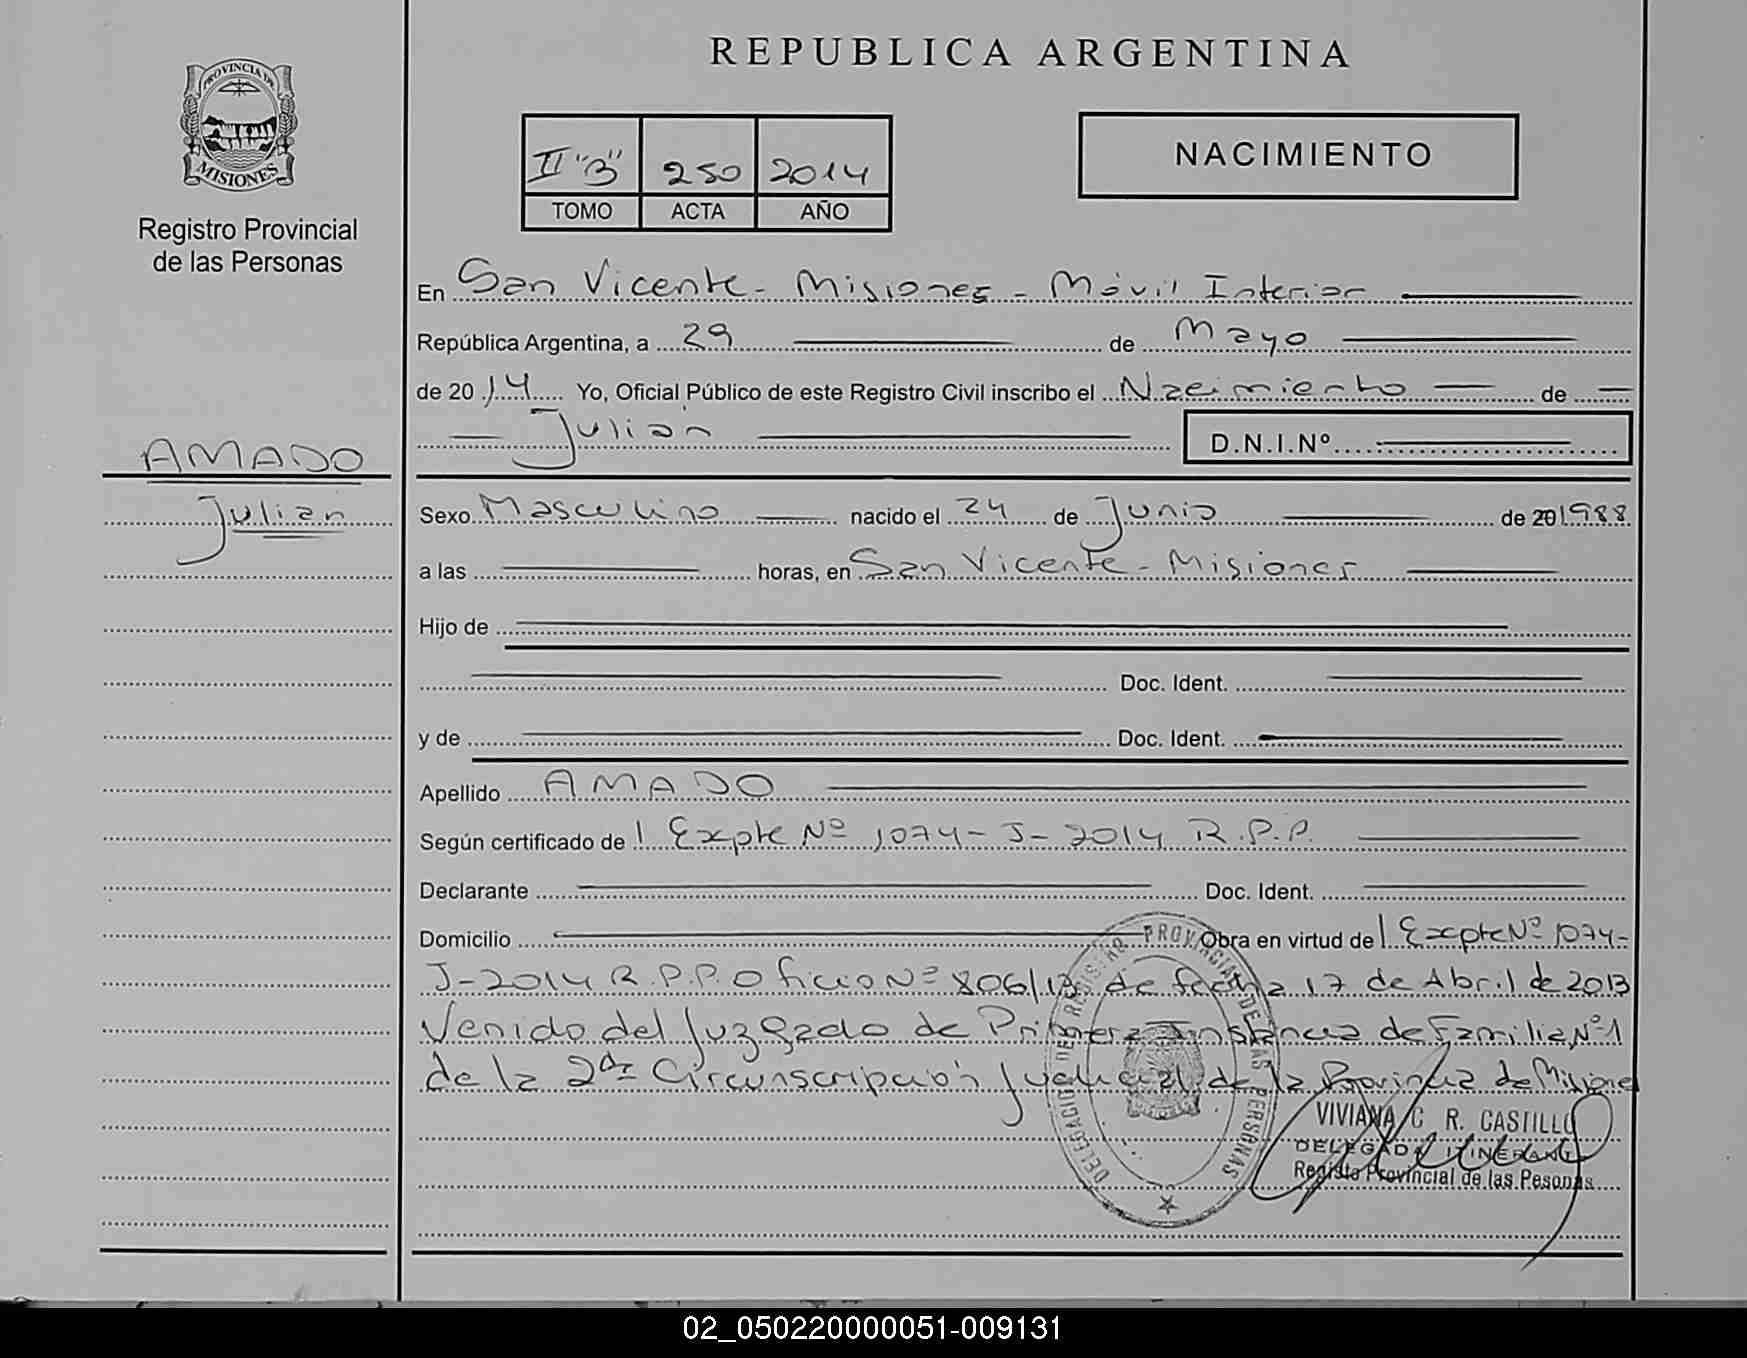 REPUBLICA ARGENTINA
PROVINCIA DE
MISIONES
Registro Provincial
de las Personas
II "B" 250 2014
TOMO ACTA AÑO
NACIMIENTO
En San Vicente - Misiones - Móvil Interior
República Argentina, a 29 de Mayo
de 2014 Yo, Oficial Público de este Registro Civil inscribo el Nacimiento de
Julian D.N.I.Nº
AMADO
Julian
Sexo Masculino nacido el 24 de Junio de 201988
a las horas, en San Vicente - Misiones
Hijo de
Doc. Ident.
y de Doc. Ident.
Apellido AMADO
Según certificado de | Expte Nº 1074-J-2014 R.P.P.
Declarante Doc. Ident.
Domicilio Obra en virtud de | Expte Nº 1074-
J-2014 R.P.P. Oficio Nº 806/13 de fecha 17 de Abril de 2013
Venido del Juzgado de Primera Instancia de Familia Nº 1
de la 2da Circunscripción Judicial de la Provincia de Misiones
DELEGACIO DE REGISTRO PROVINCIAL DE LAS PERSONAS
VIVIANA C R. CASTILLO
DELEGADA ITINERANTE
Registo Provincial de las Pesonas
02_050220000051-009131